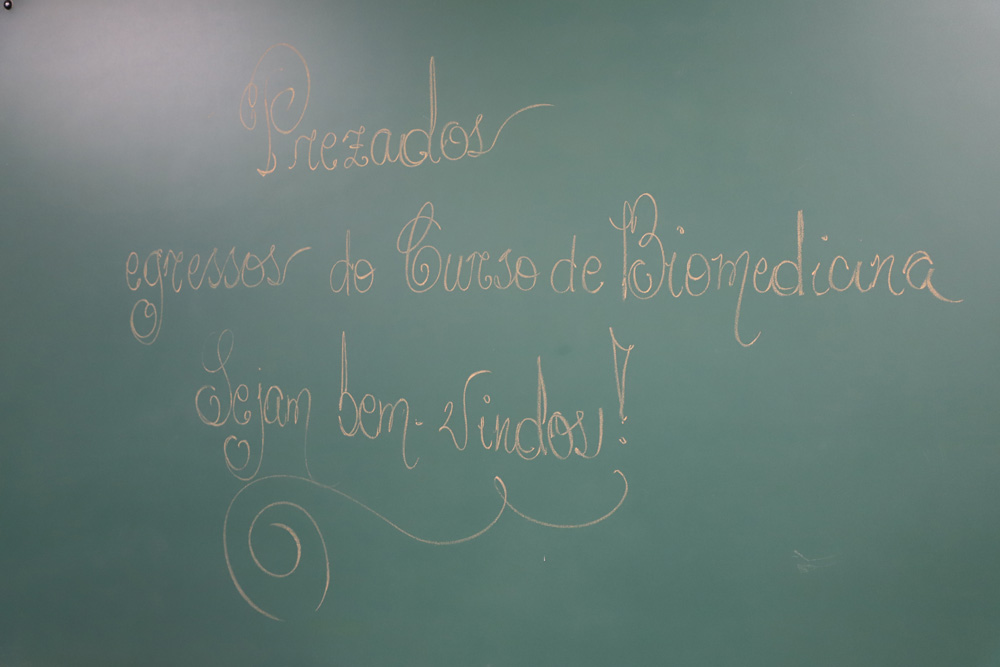 Prezados
egressos do Curso de Biomedicina
Sejam bem-vindos!